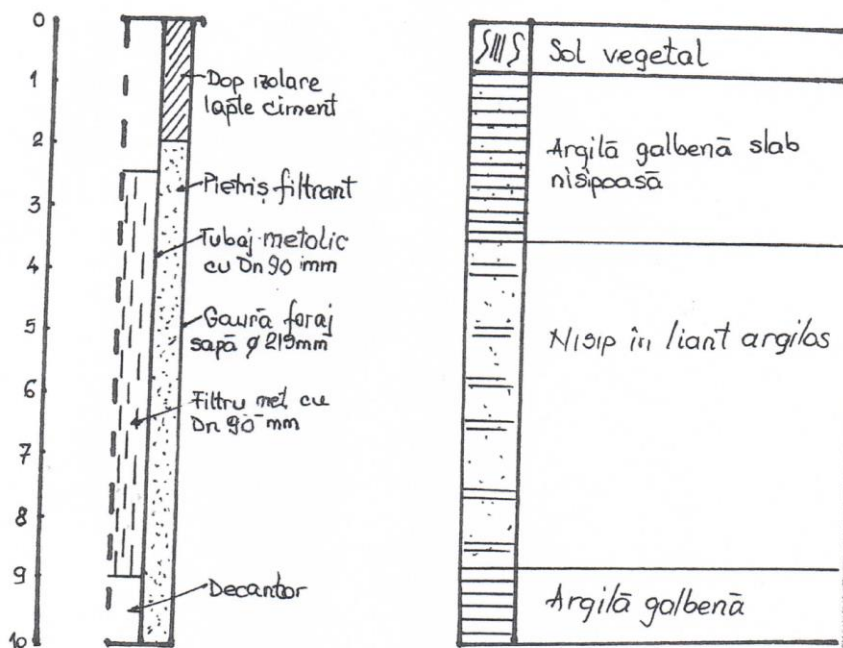 0
1
2
3
4
5
6
7
8
9
10
Dop izolare
lapte ciment
Pietriș filtrant
Tubaj metalic
cu Dn 90 mm
Gaură foraj
sapă ø 219mm
Filtru met cu
Dn 90 mm
Decantor
Sol vegetal
Argilă galbenă slab
nisipoasă
Nisip în liant argilos
Argilă galbenă